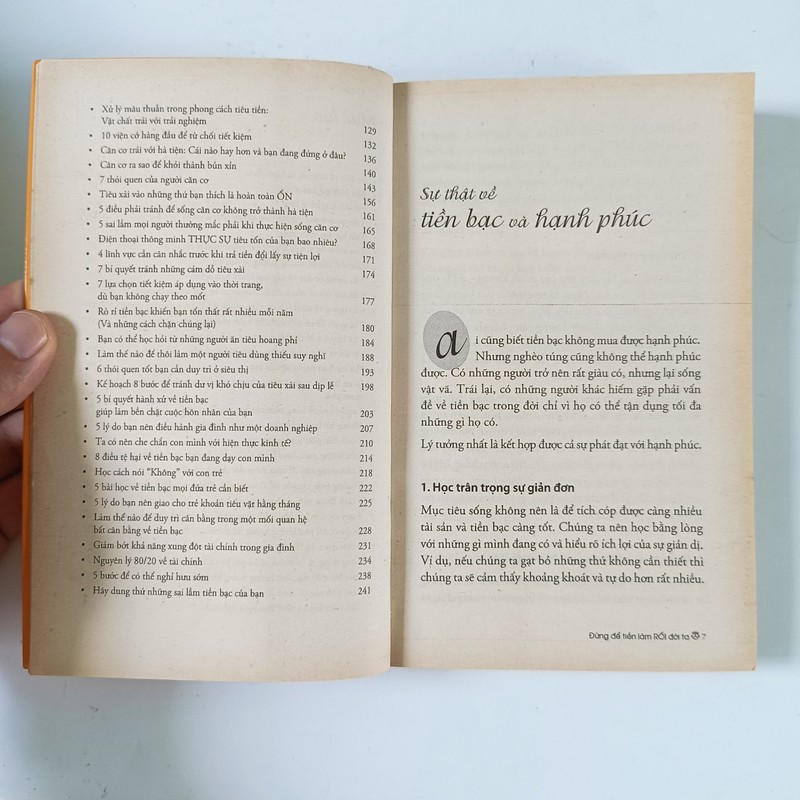 • Xử lý mâu thuẫn trong phong cách tiêu tiền:
Vật chất trái với trải nghiệm 129
• 10 viện cớ hàng đầu để từ chối tiết kiệm 132
• Căn cơ trái với hà tiện: Cái nào hay hơn và bạn đang đứng ở đâu? 136
• Căn cơ ra sao để khỏi thành bủn xỉn 140
• 7 thói quen của người căn cơ 143
• Tiêu xài vào những thứ bạn thích là hoàn toàn ỔN 156
• 5 điều phải tránh để sống căn cơ không trở thành hà tiện 161
• 5 sai lầm mọi người thường mắc phải khi thực hiện sống căn cơ 165
• Điện thoại thông minh THỰC SỰ tiêu tốn của bạn bao nhiêu? 168
• 4 lĩnh vực cần cân nhắc trước khi trả tiền đổi lấy sự tiện lợi 171
• 7 bí quyết tránh những cám dỗ tiêu xài 174
• 7 lựa chọn tiết kiệm áp dụng vào thời trang,
dù bạn không chạy theo mốt 177
• Rò rỉ tiền bạc khiến bạn tổn thất rất nhiều mỗi năm
(Và những cách chặn chúng lại) 180
• Bạn có thể học hỏi từ những người ăn tiêu hoang phí 184
• Làm thế nào để thôi làm một người tiêu dùng thiếu suy nghĩ 188
• 6 thói quen tốt bạn cần duy trì ở siêu thị 193
• Kế hoạch 8 bước để tránh dư vị khó chịu của tiêu xài sau dịp lễ 198
• 5 bí quyết hành xử về tiền bạc
giúp làm bền chặt cuộc hôn nhân của bạn 203
• 5 lý do bạn nên điều hành gia đình như một doanh nghiệp 207
• Ta có nên che chắn con mình với hiện thực kinh tế? 210
• 8 điều tệ hại về tiền bạc bạn đang dạy con mình 214
• Học cách nói "Không" với con trẻ 218
• 5 bài học về tiền bạc mọi đứa trẻ cần biết 222
• 5 lý do bạn nên giao cho trẻ khoản tiêu vặt hằng tháng 225
• Làm thế nào để duy trì cân bằng trong một mối quan hệ
bất cân bằng về tiền bạc 228
• Giảm bớt khả năng xung đột tài chính trong gia đình 231
• Nguyên lý 80/20 về tài chính 234
• 5 bước để có thể nghỉ hưu sớm 238
• Hãy dung thứ những sai lầm tiền bạc của bạn 241
Sự thật về
tiền bạc và hạnh phúc
ai cũng biết tiền bạc không mua được hạnh phúc.
Nhưng nghèo túng cũng không thể hạnh phúc
được. Có những người trở nên rất giàu có, nhưng lại sống
vật vã. Trái lại, có những người khác hiếm gặp phải vấn
đề về tiền bạc trong đời chỉ vì họ có thể tận dụng tối đa
những gì họ có.
Lý tưởng nhất là kết hợp được cả sự phát đạt với hạnh phúc.
1. Học trân trọng sự giản đơn
Mục tiêu sống không nên là để tích cóp được càng nhiều
tài sản và tiền bạc càng tốt. Chúng ta nên học bằng lòng
với những gì mình đang có và hiểu rõ ích lợi của sự giản dị.
Ví dụ, nếu chúng ta gạt bỏ những thứ không cần thiết thì
chúng ta sẽ cảm thấy khoảng khoát và tự do hơn rất nhiều.
Đừng để tiền làm RỐI đời ta 7